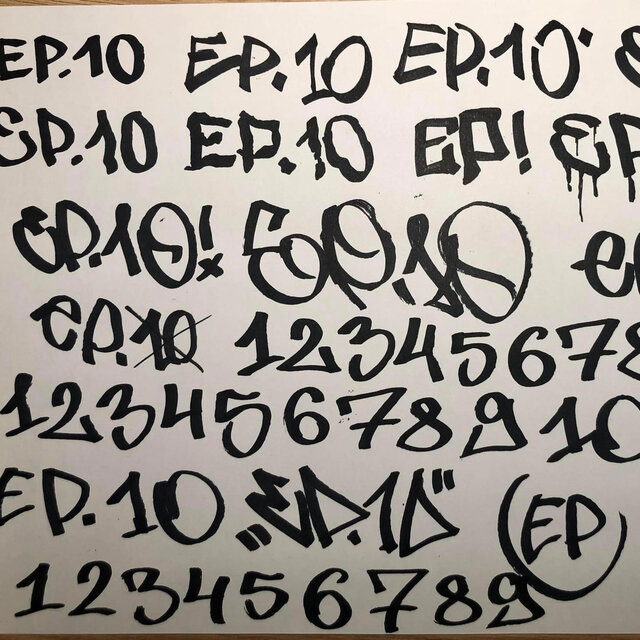 EP.10 EP.10 EP.10
EP.10 EP.10 EP! EP
EP.10! EP.10 e
EP.10 12345678
12345678910
EP.10 „EP.10" (EP)
123456789